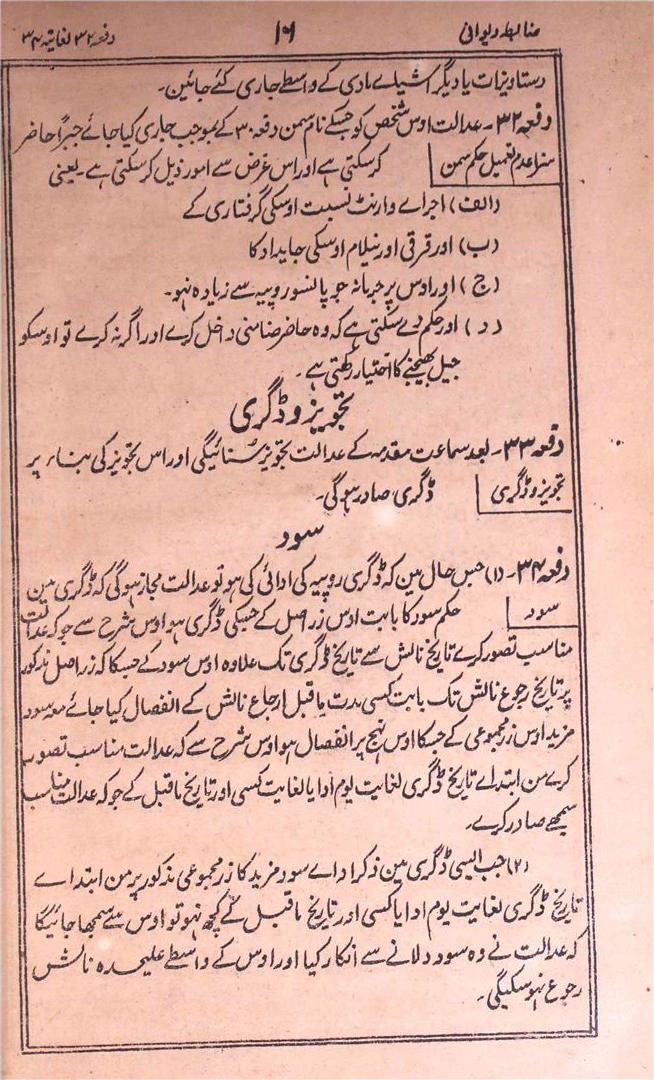 ضابطہ دیوانی
۱۶
دفعہ ۳۲ لغایتہ ۳۴
دستاویزات یا دیگر اشیاے مادی کے واسطے جاری کئے جائین۔
دفعہ ۳۲۔ عدالت اوس شخص کو جسکے نام سمن دفعہ ۳۰ کے بموجب جاری کیا جائے جبراً حاضر
سزا عدم تعمیل حکم سمن
کرسکتی ہے اور اس غرض سے امور ذیل کرسکتی ہے۔ یعنی
(الف) اجراے وارنٹ نسبت اوسکی گرفتاری کے
(ب) اور قرقی اور نیلام اوسکی جایداد کا
(ج) اور اوس پر جرمانہ جو پانسو روپیہ سے زیادہ نہو۔
(د) اور حکم دے سکتی ہے کہ وہ حاضر ضامنی داخل کرے اور اگر نہ کرے تو اوسکو
جیل بھیجنے کا اختیار رکھتی ہے۔
تجویز و ڈگری
دفعہ ۳۳۔ بعد سماعت مقدمہ کے عدالت تجویز سُنائیگی اور اس تجویز کی بناء پر
تجویز و ڈگری
ڈگری صادر ہوگی۔
سود
دفعہ ۳۴۔ (۱) جس حال مین کہ ڈگری روپیہ کی ادائی کی ہو تو عدالت مجاز ہوگی کہ ڈگری مین
سود
حکم سود کا بابت اوس زر اصل کے جسکی ڈگری ہو اوس شرح سے جو کہ عدالت
مناسب تصور کرے تاریخ نالش سے تاریخ ڈگری تک علاوہ اوس سود کے جسکا کہ زر اصل مذکور
پر تاریخ رجوع نالش تک بابت کسی مدت ماقبل ارجاع نالش کے انفصال کیا جائے معہ سود
مزید اوس زر مجموعی کے جسکا اوس نہج پر انفصال ہو اوس شرح سے کہ عدالت مناسب تصور
کرے من ابتداے تاریخ ڈگری لغایت یوم ادا یا لغایت کسی اور تاریخ ماقبل کے جو کہ عدالت مناسب
سمجھے صادر کرے۔
(۲) جب ایسی ڈگری مین ذکر اداے سود مزید کا زر مجموعی مذکور پر من ابتداے
تاریخ ڈگری لغایت یوم ادا یا کسی اور تاریخ ماقبل کے کچھ نہو تو اوس سے سمجھا جائیگا
کہ عدالت نے وہ سود دلانے سے انکار کیا اور اوس کے واسطے علیحدہ نالش
رجوع نہوسکیگی۔